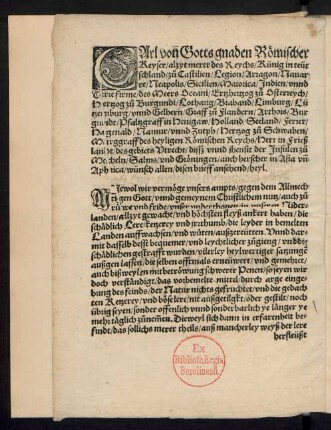 CArl von Gotts gnaden Römischer
Keyser/ alzyt merer des Reychs/ Künig in teüt
schland/ zů Castilien/ Legion/ Arragon/ Nauar
re/ Neapolis/ Sicilien/ Maiorica/ Indien/ vnnd
Terre firme/ des Meers Oceani/ Ertzhertzog zů Osterreych/
Hertzog zů Burgundi/ Lothring/ Braband/ Limburg/ Lü
tzenburg/ vnnd Gelhern/ Graff zů Flandern/ Arthois/ Bur
gundi/ Pfaltzgraff in Henigaw/ Holland/ Seeland/ Ferret/
Hagenald/ Namur/ vnnd Zutph/ Hertzog zů Schwaben/
Marggraff des heyligen Römischen Reychs/ Herr in Frieß
land/ des gebiets Vtrecht/ diß vnnd ihensit der Insulen zů
Mecheln/ Salms/ vnd Gröningen/ auch herscher in Asia vnd
Aphrica/ wünsch allen/ disen brieff ansehend/ heyl.
WJewol wir vermöge vnsers ampts/ gegen dem Allmech
tigen Gott/ vnnd gemeynem Christlichem nutz/ auch zů
růwe vnd fride/ vnser vnderthonen in vnseren Nider-
landen/ allzyt gewacht/ vnd höchsten fleyß ankert haben/ die
schädlich Lere/ ketzerey vnd jrrthumb/ die leyder in bemelten
Landen auffwachsen/ vnd wüten/ außzerütten. Vnnd dar-
mit dasselb desst bequemer/ vnd leychtlicher zůgieng/ vnd die
schädlichen gestrafft wurden/ vilerley heylwertiger satzungen
außgen lassen/ die selben offtmals erneüwert/ vnd gemehret/
auch biß weylen mit beröwung schwerer Penen/ so seyen wir
doch verständiget/ das vorbemelte mittel/ durch arge eingebung
des feinds/ der Natur nichts gefruchtet/ vnd die gedach
ten Ketzerey/ vnd böse lere/ nit außgetilgkt/ oder gestilt/ noch
übrig seyen/ sonder offenlich vnnd sonderbarlich ye länger ye
mehr täglich zůnemen. Dieweyl sich dann in erfarenheit be-
findt/ das sollichs merer theils/ auß mancherley weyß der lere
herfleüßt
Ex
Biblioth. Regia
Berolinensi.